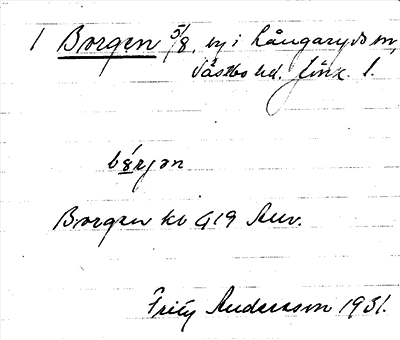 1 Borgen 5/8, by i Långaryds sn,
Västbo hd. Jönk. l.
bǝrjən
Borgen kb A19 Anv.
Fritz Andersson 1931.